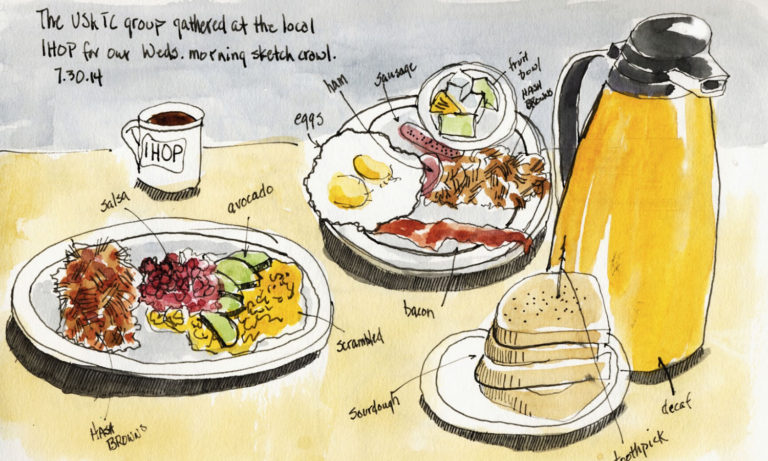 The USkTC group gathered at the local
IHOP for our Weds. morning sketch crawl.
7.30.14
IHOP
eggs
ham
sausage
fruit
bowl
HASH
BROWNS
salsa
avocado
bacon
scrambled
sourdough
HASH
BROWNS
decaf
toothpick